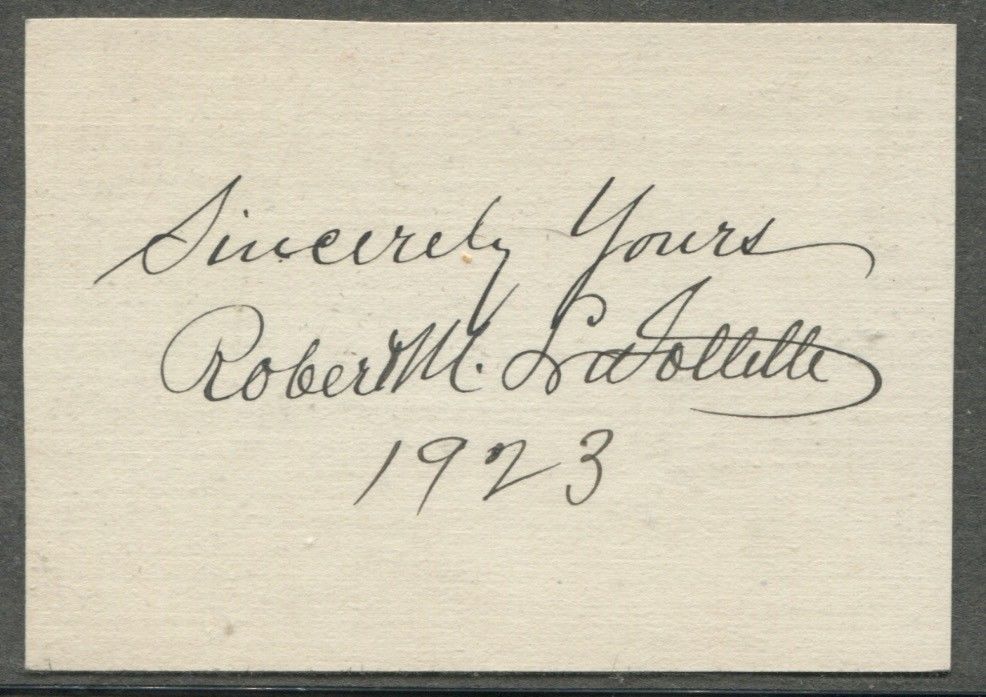 Sincerely Yours
Robert M. La Follette
1923